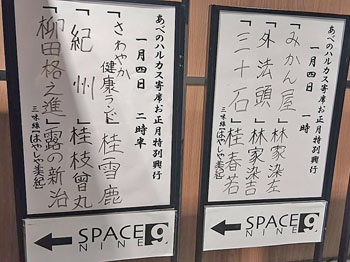 あべのハルカス寄席お正月特別興行
一月四日
「みかん屋」林家染左
「外法頭」林家染吉
「三十石」桂春若
三味線(はやしや美紀)
SPACE
NINE
9
あべのハルカス寄席お正月特別興行
一月四日 二時半
「さわやか
健康ランド」桂雪鹿
「紀州」桂枝曾丸
「柳田格之進」露の新治
三味線(はやしや美紀)
SPACE
NINE
9